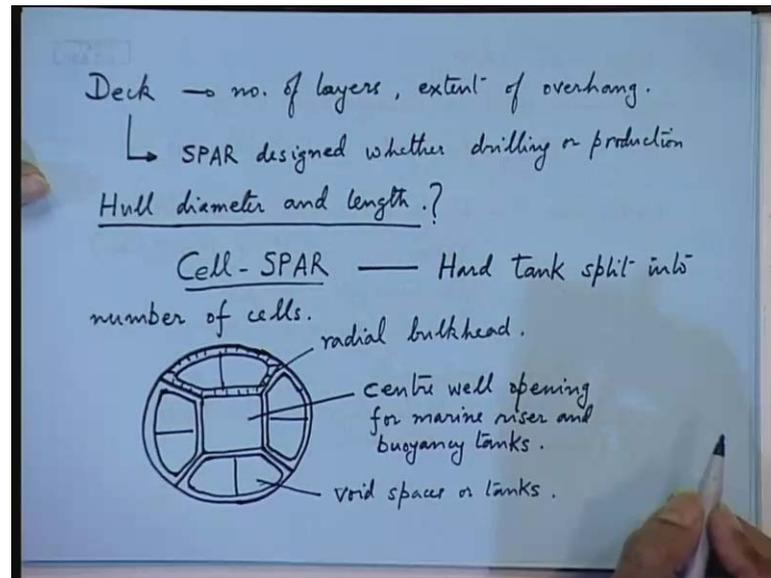 Deck → no. of layers, extent of overhang.
↳ SPAR designed whether drilling or production
Hull diameter and length.?
Cell-SPAR — Hard tank split into
number of cells.
radial bulkhead.
centre well opening
for marine riser and
buoyancy tanks.
void spaces or tanks.